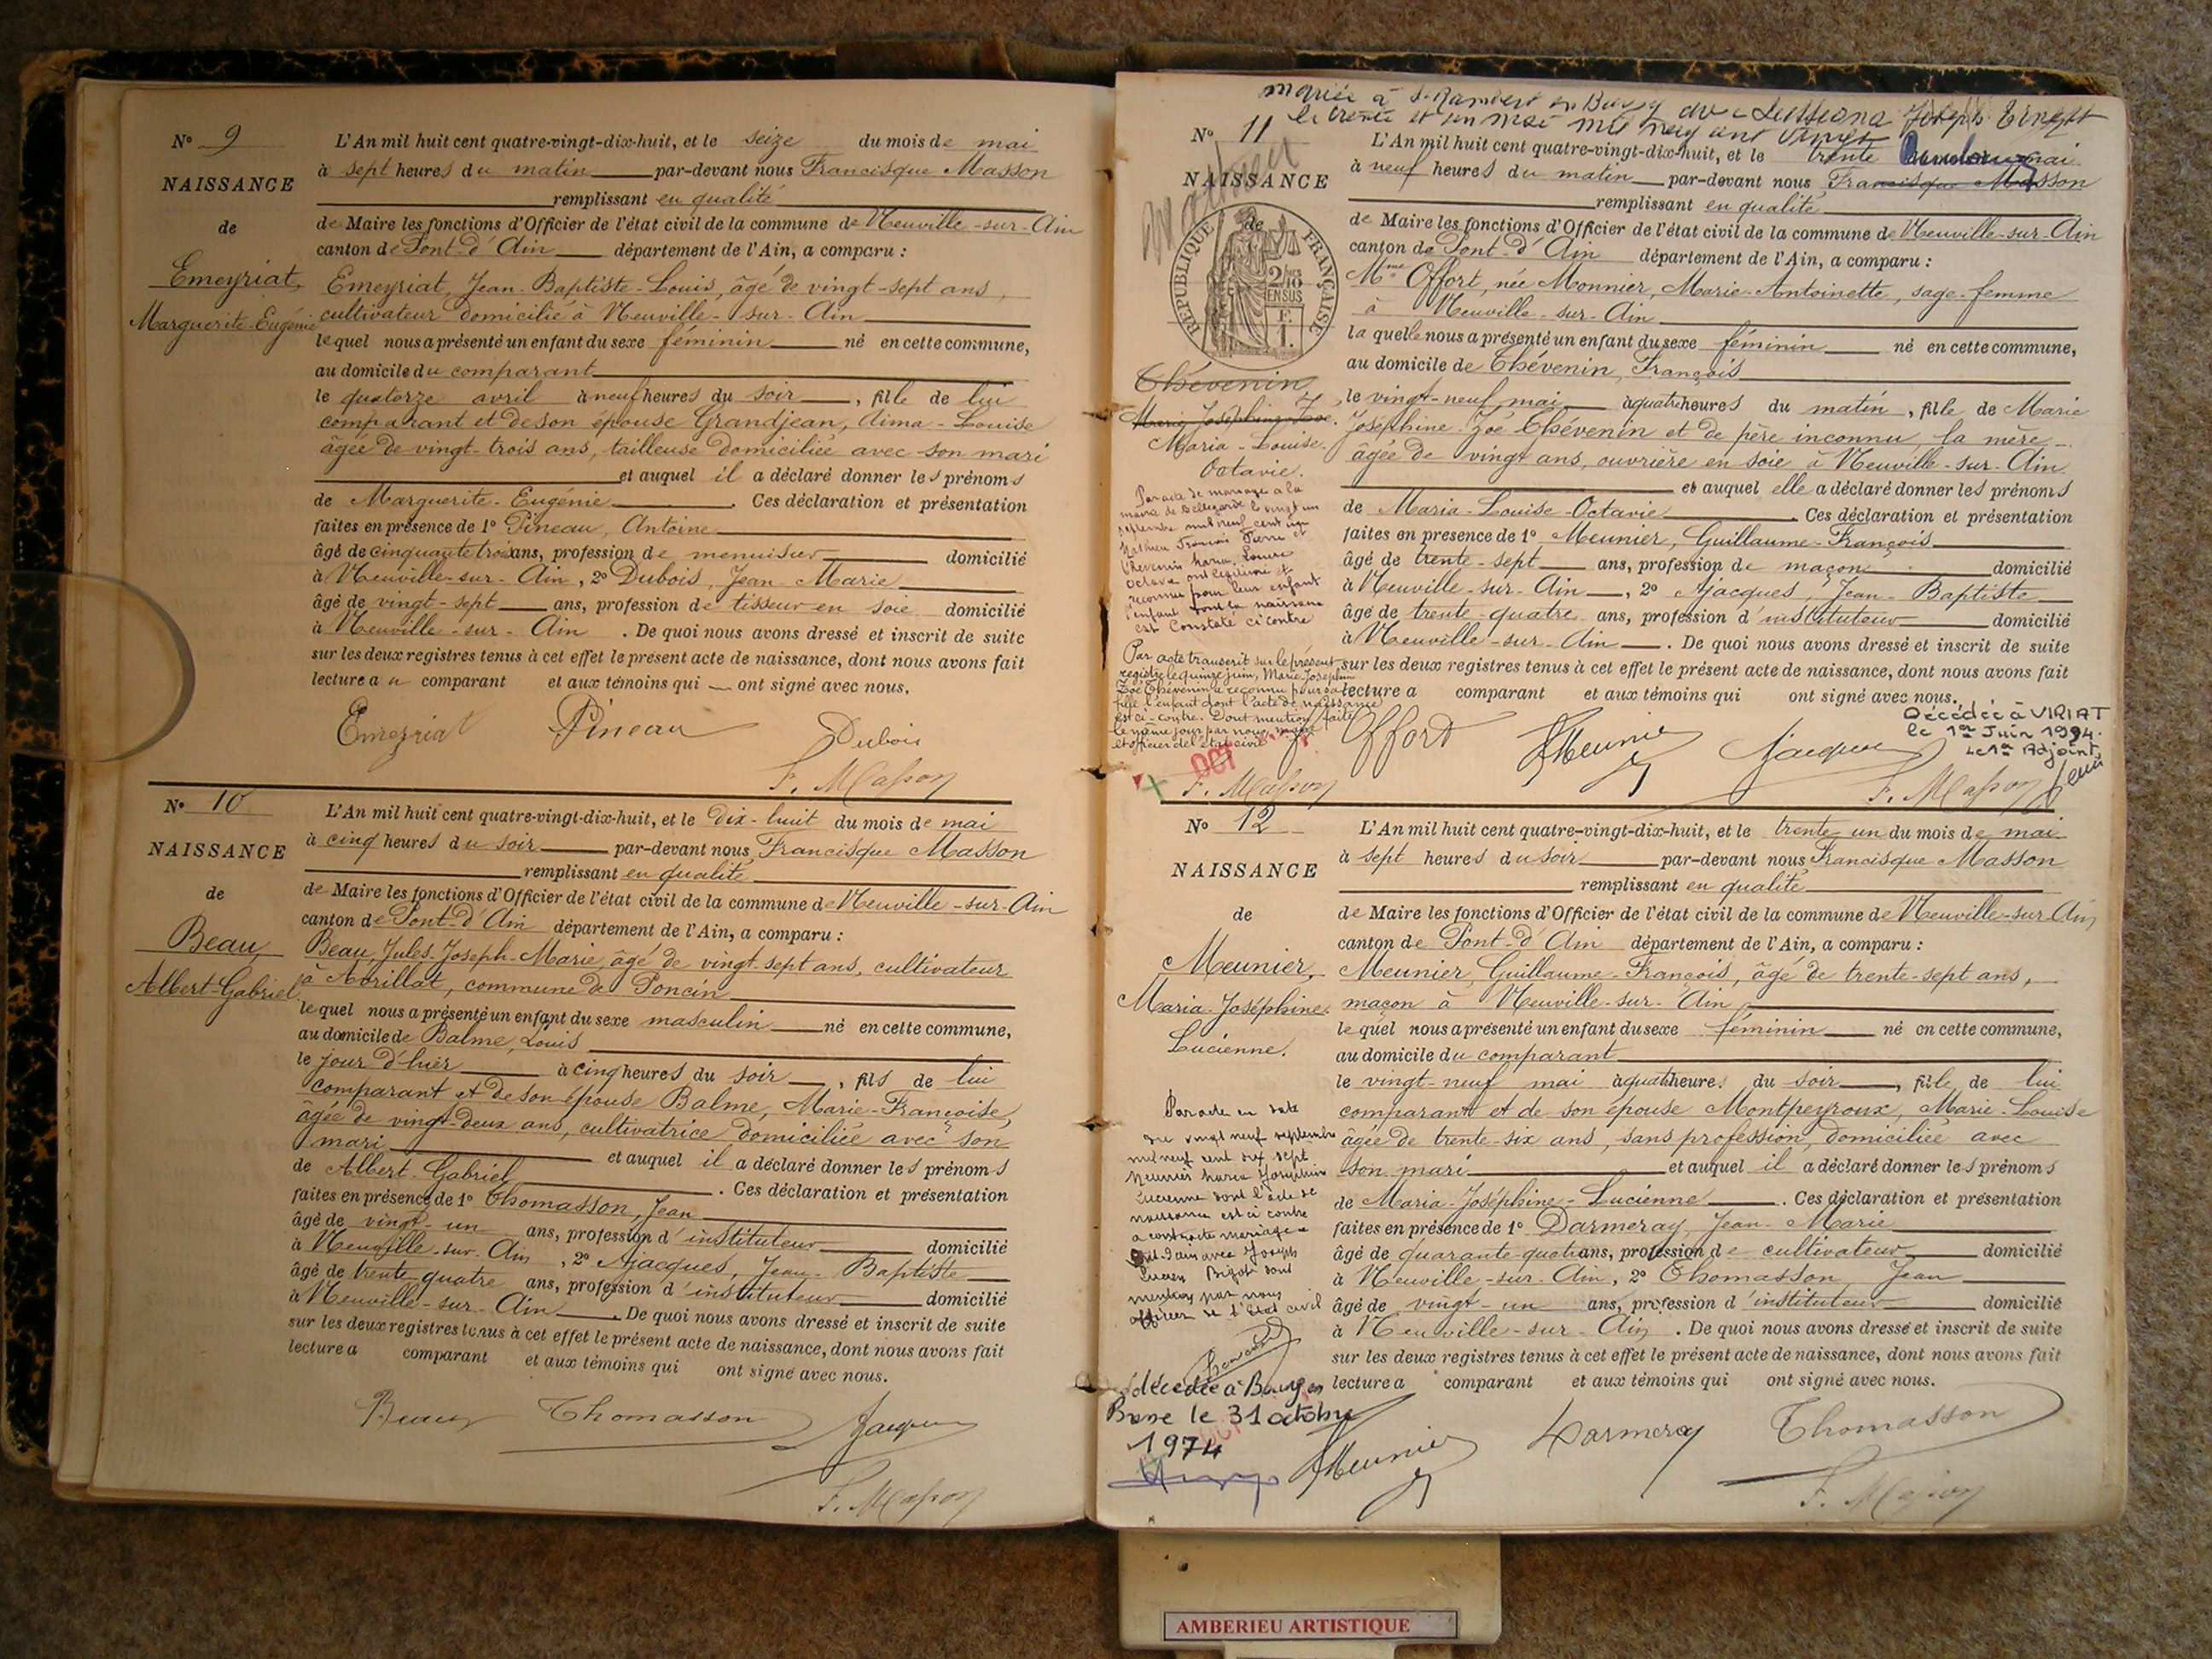 N° 9
NAISSANCE
de
Emeyriat,
Marguerite-Eugénie
L'An mil huit cent quatre-vingt-dix-huit, et le seize du mois de mai
à sept heures du matin par-devant nous Francisque Masson
remplissant en qualité
de Maire les fonctions d'Officier de l'état civil de la commune de Neuville-sur-Ain
canton de Pont-d'Ain département de l'Ain, a comparu :
Emeyriat, Jean-Baptiste-Louis, âgé de vingt-sept ans,
cultivateur domicilié à Neuville-sur-Ain
lequel nous a présenté un enfant du sexe féminin né en cette commune,
au domicile du comparant
le quatorze avril à neuf heures du soir, fille de lui
comparant et de son épouse Grandjean, Aima-Louise
âgée de vingt-trois ans, tailleuse domiciliée avec son mari
et auquel il a déclaré donner les prénoms
de Marguerite-Eugénie. Ces déclaration et présentation
faites en présence de 1° Pineau, Antoine
âgé de cinquante trois ans, profession de menuisier domicilié
à Neuville-sur-Ain, 2° Dubois, Jean Marie
âgé de vingt-sept ans, profession de tisseur en soie domicilié
à Neuville-sur-Ain. De quoi nous avons dressé et inscrit de suite
sur les deux registres tenus à cet effet le présent acte de naissance, dont nous avons fait
lecture au comparant et aux témoins qui ont signé avec nous.
Emeyriat Pineau Dubois
F. Masson
N° 10
NAISSANCE
de
Beau,
Albert-Gabriel.
L'An mil huit cent quatre-vingt-dix-huit, et le dix-huit du mois de mai
à cinq heures du soir par-devant nous Francisque Masson
remplissant en qualité
de Maire les fonctions d'Officier de l'état civil de la commune de Neuville-sur-Ain
canton de Pont-d'Ain département de l'Ain, a comparu :
Beau, Jules-Joseph-Marie, âgé de vingt-sept ans, cultivateur
à Avrillat, commune de Poncin
lequel nous a présenté un enfant du sexe masculin né en cette commune,
au domicile de Balme, Louis
le jour d'hier à cinq heures du soir, fils de lui
comparant et de son épouse Balme, Marie-Françoise,
âgée de vingt-deux ans, cultivatrice domiciliée avec son
mari et auquel il a déclaré donner les prénoms
de Albert-Gabriel. Ces déclaration et présentation
faites en présence de 1° Thomasson, Jean
âgé de vingt-un ans, profession d'instituteur domicilié
à Neuville-sur-Ain, 2° Ajacques, Jean-Baptiste
âgé de trente-quatre ans, profession d'instituteur domicilié
à Neuville-sur-Ain. De quoi nous avons dressé et inscrit de suite
sur les deux registres tenus à cet effet le présent acte de naissance, dont nous avons fait
lecture a comparant et aux témoins qui ont signé avec nous.
Beau Thomasson Ajacques
F. Masson
mariée à St Rambert en Bugey avec Joseph Ernest
le trente et un mai mil neuf cent vingt
N° 11
NAISSANCE
de
RÉPUBLIQUE FRANÇAISE
2/10 EN SUS
F.
1.
Thévenin,
Marie Joséphine Zoe.
Maria-Louise-
Octavie.
Par acte de mariage à la
mairie de Bellegarde le vingt un
septembre mil neuf cent
Mathieu François Pierre et
Thevenin Maria Louise
Octavie ont légitimé et
reconnu pour leur enfant
l'enfant dont la naissance
est constaté ci contre
Par acte transcrit sur le présent
registre le quinze juin, Marie Josephine
Zoé Thévenin a reconnu pour sa
fille l'enfant dont l'acte de naissance
est ci-contre. Dont mention faite
le même jour par nous, maire
et officier de l'état civil
F. Masson
L'An mil huit cent quatre-vingt-dix-huit, et le trente mai
à neuf heures du matin par-devant nous Francisque Masson
remplissant en qualité
de Maire les fonctions d'Officier de l'état civil de la commune de Neuville-sur-Ain
canton de Pont-d'Ain département de l'Ain, a comparu :
Mme Offort, née Monnier, Marie-Antoinette, sage-femme
à Neuville-sur-Ain
laquelle nous a présenté un enfant du sexe féminin né en cette commune,
au domicile de Thévenin, François
le vingt-neuf mai à quatre heures du matin, fille de Marie
Joséphine-Zoé Thévenin et de père inconnu, la mère
âgée de vingt ans, ouvrière en soie à Neuville-sur-Ain
et auquel elle a déclaré donner les prénoms
de Maria-Louise-Octavie. Ces déclaration et présentation
faites en présence de 1° Meunier, Guillaume-François
âgé de trente-sept ans, profession de maçon domicilié
à Neuville-sur-Ain, 2° Ajacques, Jean-Baptiste
âgé de trente-quatre ans, profession d'instituteur domicilié
à Neuville-sur-Ain. De quoi nous avons dressé et inscrit de suite
sur les deux registres tenus à cet effet le présent acte de naissance, dont nous avons fait
lecture a comparant et aux témoins qui ont signé avec nous.
Décédée à VIRIAT
le 1er Juin 1994.
Le 1er Adjoint,
Offort Meunier Ajacques
F. Masson
N° 12
NAISSANCE
de
Meunier,
Maria-Joséphine-
Lucienne.
Par acte en date
du vingt neuf septembre
mil neuf cent dix sept
Meunier Maria Josephine
Lucienne dont l'acte de
naissance est ci contre
a contracté mariage à
Pont d'Ain avec Joseph
Lucien Bigot dont
mention par nous
officier de l'Etat civil
décédée à Bourg en
Bresse le 31 octobre
1974
L'An mil huit cent quatre-vingt-dix-huit, et le trente un du mois de mai
à sept heures du soir par-devant nous Francisque Masson
remplissant en qualité
de Maire les fonctions d'Officier de l'état civil de la commune de Neuville-sur-Ain
canton de Pont-d'Ain département de l'Ain, a comparu :
Meunier, Guillaume-François, âgé de trente-sept ans,
maçon à Neuville-sur-Ain
lequel nous a présenté un enfant du sexe féminin né en cette commune,
au domicile du comparant
le vingt-neuf mai à quatre heures du soir, fille de lui
comparant et de son épouse Montpeyroux, Marie-Louise
âgée de trente-six ans, sans profession, domiciliée avec
son mari et auquel il a déclaré donner les prénoms
de Maria-Joséphine-Lucienne. Ces déclaration et présentation
faites en présence de 1° Darmeray, Jean-Marie
âgé de quarante-quatre ans, profession de cultivateur domicilié
à Neuville-sur-Ain, 2° Thomasson, Jean
âgé de vingt-un ans, profession d'instituteur domicilié
à Neuville-sur-Ain. De quoi nous avons dressé et inscrit de suite
sur les deux registres tenus à cet effet le présent acte de naissance, dont nous avons fait
lecture a comparant et aux témoins qui ont signé avec nous.
Meunier Darmeray Thomasson
F. Masson
AMBERIEU ARTISTIQUE